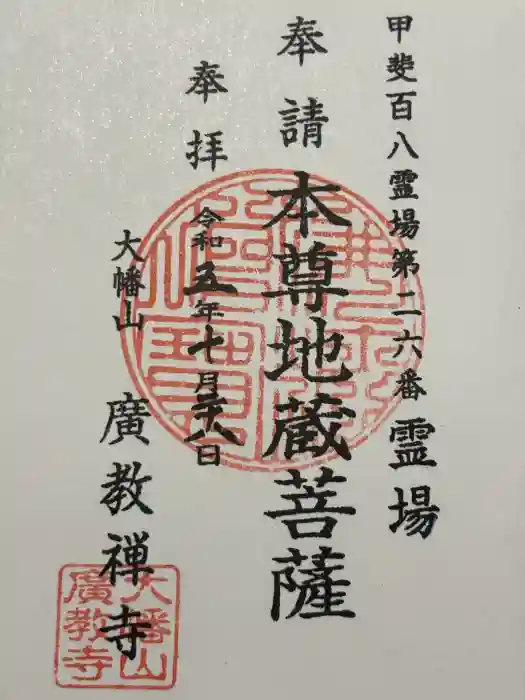 甲斐百八霊場第二六番霊場
奉請 本尊地蔵菩薩
奉拝 令和五年七月廿八日
大幡山 廣教禅寺
大幡山
廣教寺